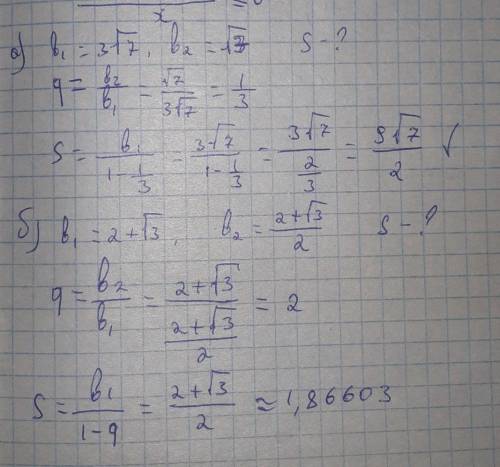 x = 0
а) b₁ = 3√7, b₂ = √7 S - ?
q = b₂/b₁ = √7/3√7 = 1/3
S = b₁/(1 - 1/3) = 3√7/(1 - 1/3) = 3√7/(2/3) = 9√7/2 ✓
б) b₁ = 2+√3, b₂ = (2+√3)/2 S - ?
q = b₂/b₁ = (2+√3)/((2+√3)/2) = 2
S = b₁/(1-q) = (2+√3)/2 ≈ 1,86603